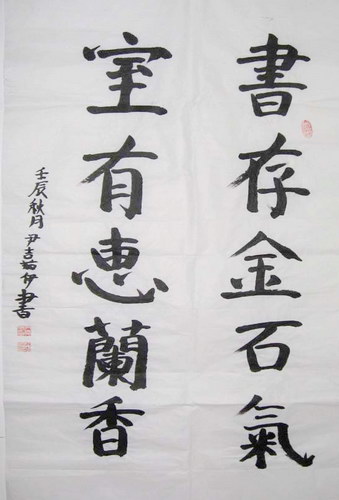 書存金石氣
室有惠蘭香
壬辰秋月尹吉
書